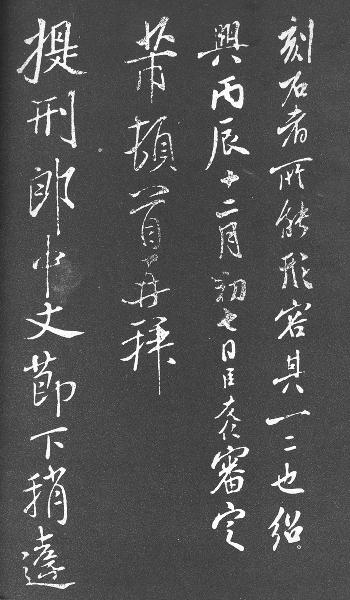 刻石者所能形容其一二也紹
興丙辰十二月初七日臣友仁審定
芾頓首再拜
提刑郎中丈節下稍遠